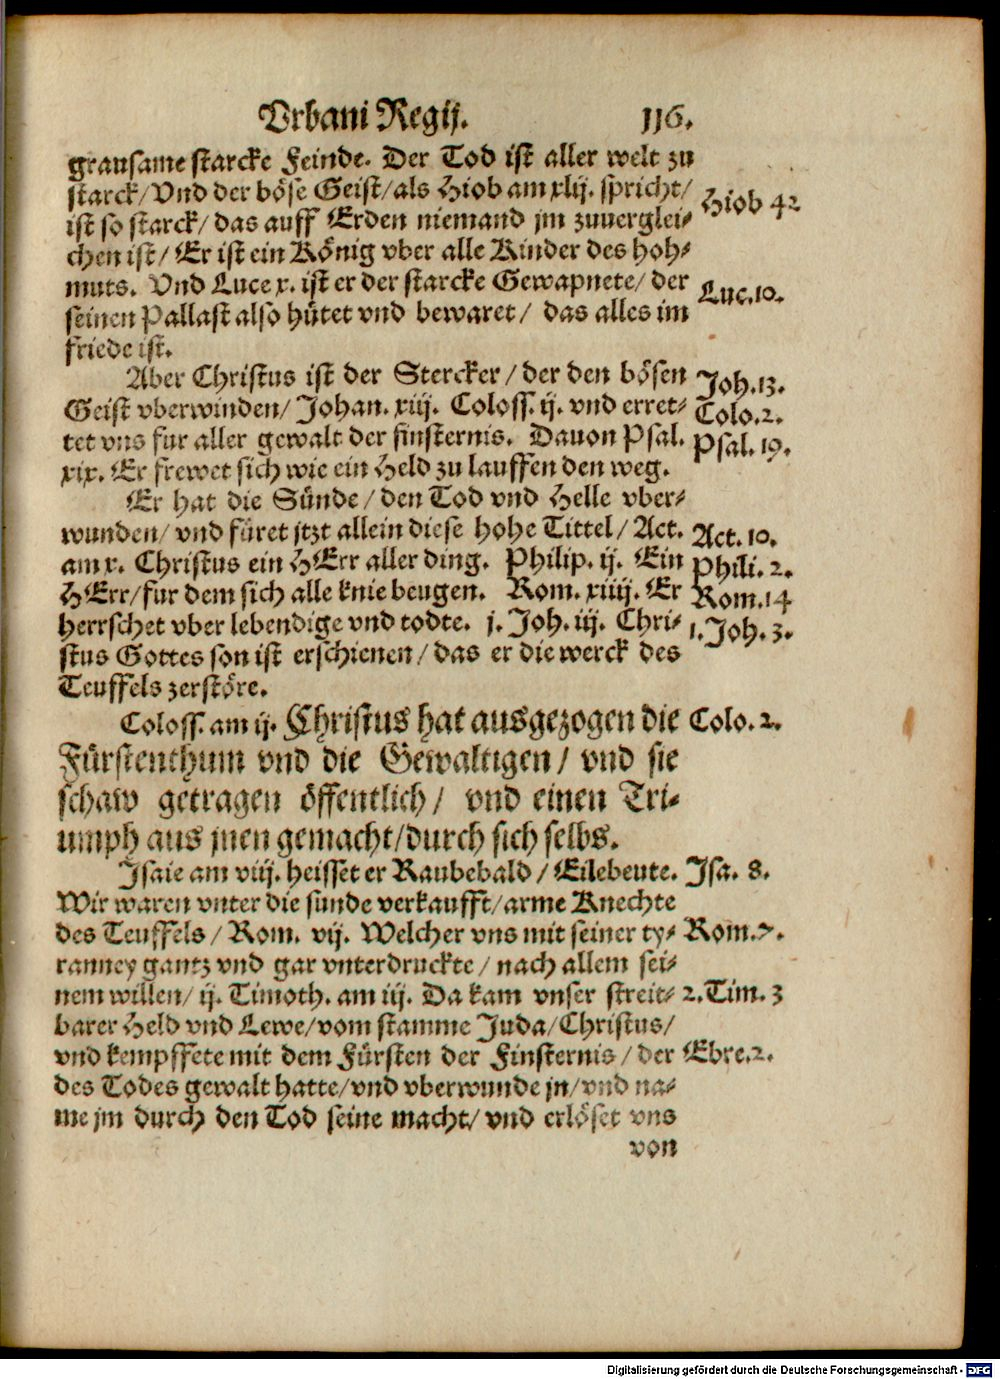 Vrbani Regij. 116.
grausame starcke Feinde. Der Tod ist aller welt zu
starck/ Vnd der böse Geist/ als Hiob am xlij. spricht/ Hiob 42
ist so starck/ das auff Erden niemand jm zuuerglei-
chen ist/ Er ist ein König vber alle Kinder des hoh-
muts. Vnd Luce x. ist er der starcke Gewapnete/ der Luc. 10.
seinen Pallast also hütet vnd bewaret/ das alles im
friede ist.
Aber Christus ist der Stercker/ der den bösen Joh. 13.
Geist vberwinden/ Johan. xiij. Coloss. ij. vnd erret- Colo. 2.
tet vns fur aller gewalt der finsternis. Dauon Psal. Psal. 19.
xix. Er frewet sich wie ein Held zu lauffen den weg.
Er hat die Sünde/ den Tod vnd Helle vber-
wunden/ vnd füret jtzt allein diese hohe Tittel/ Act. Act. 10.
am x. Christus ein HErr aller ding. Philip. ij. Ein Phili. 2.
HErr/ fur dem sich alle knie beugen. Rom. xiiij. Er Rom. 14
herrschet vber lebendige vnd todte. j. Joh. iij. Chri- 1. Joh. 3.
stus Gottes son ist erschienen/ das er die werck des
Teuffels zerstöre.
Coloss. am ij. Christus hat ausgezogen die Colo. 2.
Fürstenthum vnd die Gewaltigen/ vnd sie
schaw getragen öffentlich/ vnd einen Tri-
umph aus jnen gemacht/ durch sich selbs.
Isaie am viij. heisset er Raubebald/ Eilebeute. Isa. 8.
Wir waren vnter die sunde verkaufft/ arme Knechte
des Teuffels/ Rom. vij. Welcher vns mit seiner ty- Rom. 7.
ranney gantz vnd gar vnterdruckte/ nach allem sei-
nem willen/ ij. Timoth. am iij. Da kam vnser streit- 2. Tim. 3
barer Held vnd Lewe/ vom stamme Juda/ Christus/
vnd kempffete mit dem Fürsten der Finsternis/ der Ebre. 2.
des Todes gewalt hatte/ vnd vberwunde jn/ vnd na-
me jm durch den Tod seine macht/ vnd erlöset vns
von
Digitalisierung gefördert durch die Deutsche Forschungsgemeinschaft - DFG